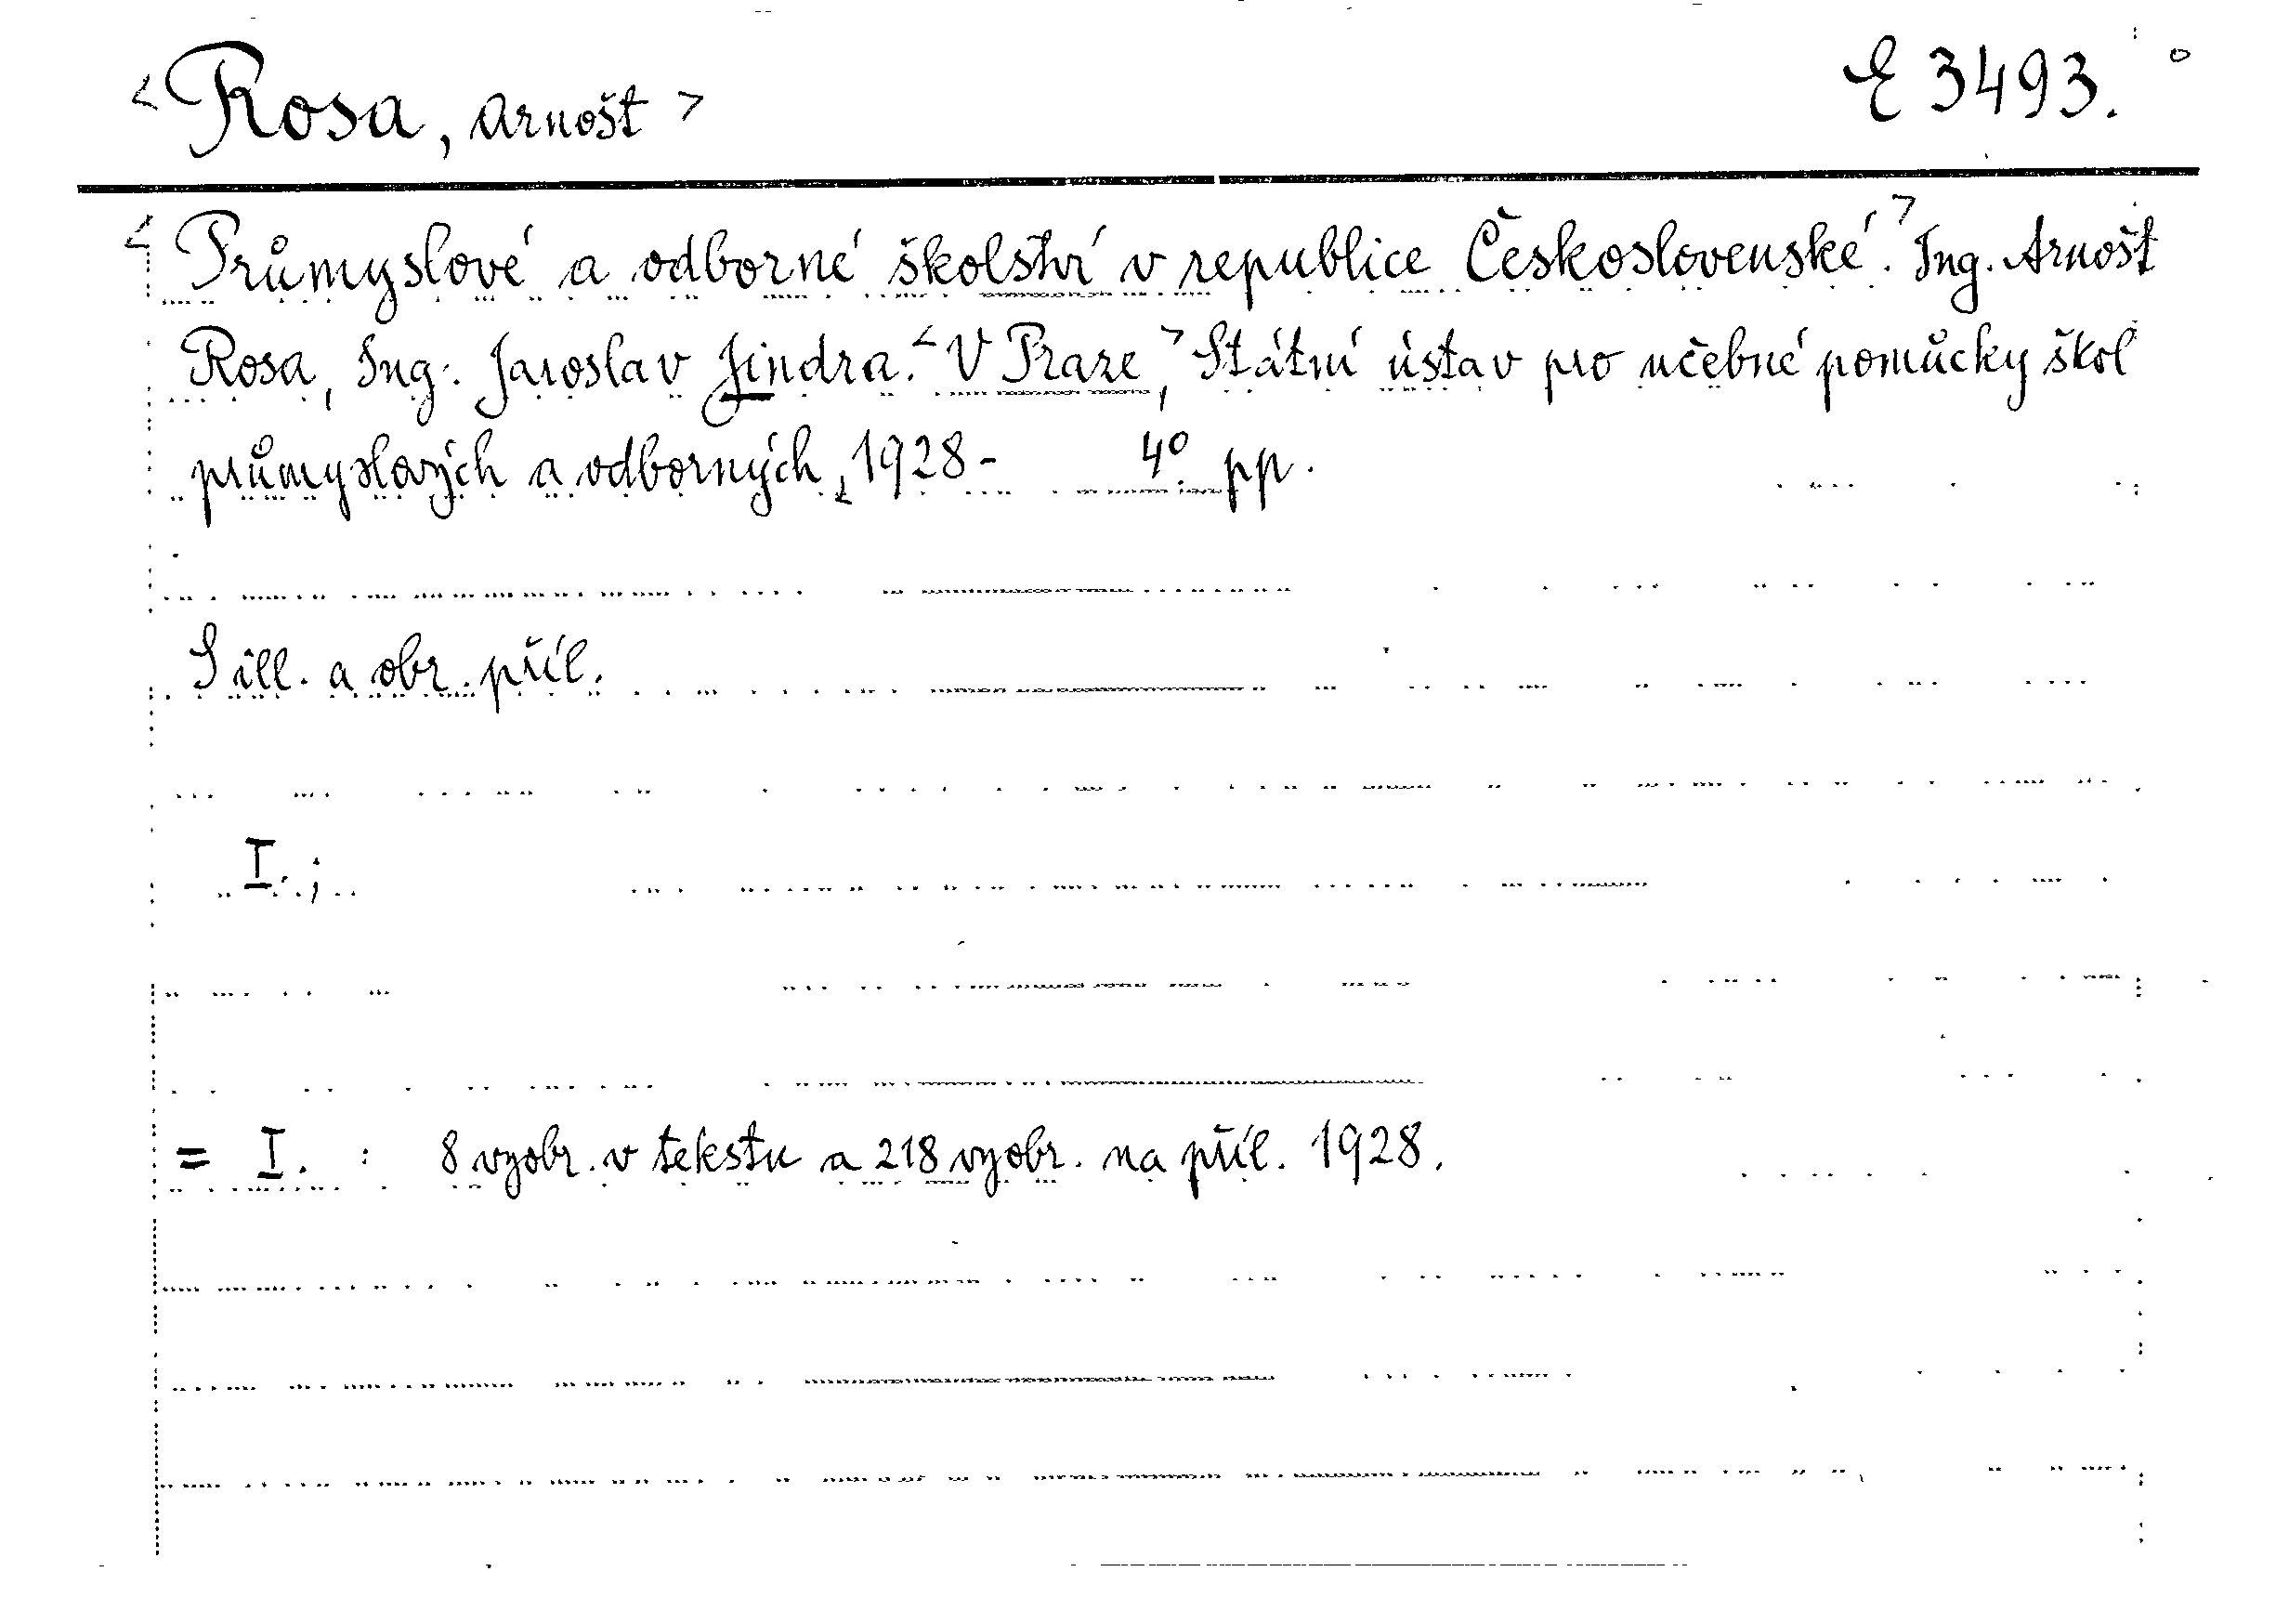 <Rosa, Arnošt> E 3493.
<Průmyslové a odborné školství v republice Československé.> Ing. Arnošt
Rosa, Ing. Jaroslav Jindra. <V Praze,> Státní ústav pro učebné pomůcky škol
průmyslových a odborných, 1928- 4° pp.
S ill. a obr. příl.
I.;
= I. : 8 vyobr. v tekstu a 218 vyobr. na příl. 1928.